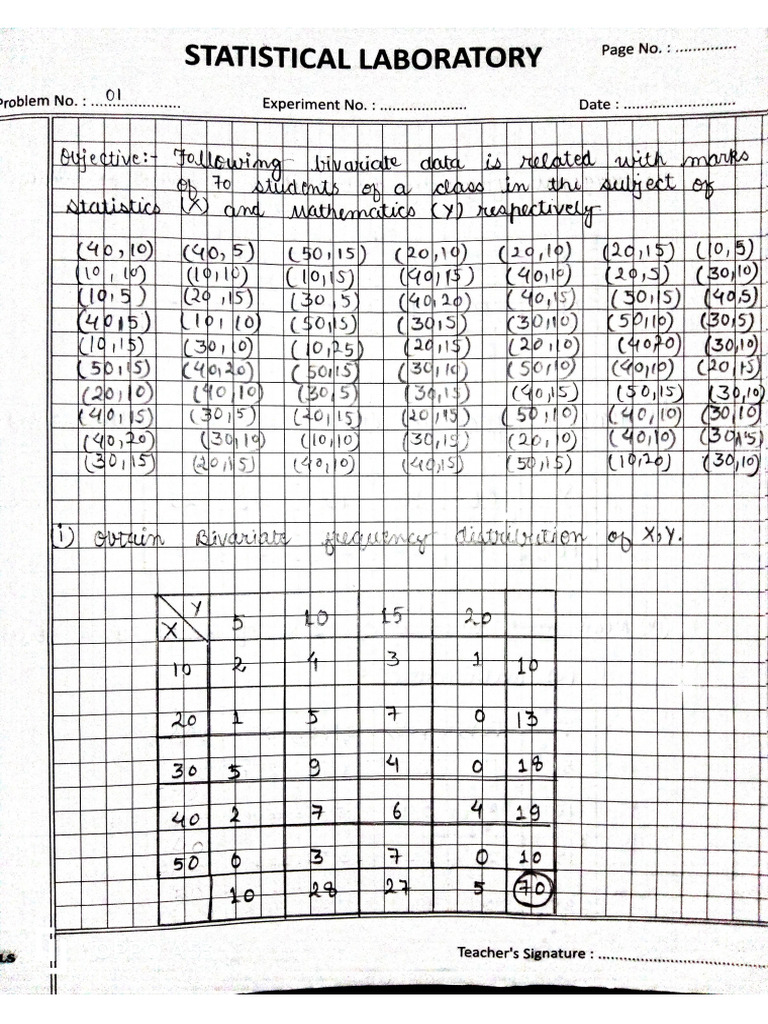 STATISTICAL LABORATORY
Page No. : ..............
Problem No. : ....01................
Experiment No. : ....................
Date : ..........................
Objective:- Following bivariate data is related with marks
of 70 students of a class in the subject of
statistics (X) and Mathematics (Y) respectively
(40,10) (40,5) (50,15) (20,10) (20,10) (20,15) (10,5)
(10,10) (10,10) (10,15) (40,15) (40,10) (20,5) (30,10)
(10,5) (20,15) (30,5) (40,20) (40,15) (50,15) (40,5)
(40,5) (10,10) (50,15) (30,5) (30,10) (50,10) (30,5)
(10,15) (30,10) (10,25) (20,15) (20,10) (40,20) (30,10)
(50,15) (40,20) (50,15) (30,10) (50,10) (40,10) (20,15)
(20,10) (40,10) (30,5) (30,15) (40,15) (50,15) (30,10)
(40,15) (30,5) (20,15) (20,15) (50,10) (40,10) (30,10)
(40,20) (30,10) (10,10) (30,15) (20,10) (40,10) (30,15)
(30,15) (20,15) (40,10) (40,15) (50,15) (10,20) (30,10)
i) Obtain Bivariate frequency distribution of X,Y.
Y
X 5 10 15 20
10 2 4 3 1 10
20 1 5 7 0 13
30 5 9 4 0 18
40 2 7 6 4 19
50 0 3 7 0 10
10 28 27 5 70
Teacher's Signature : ..............................